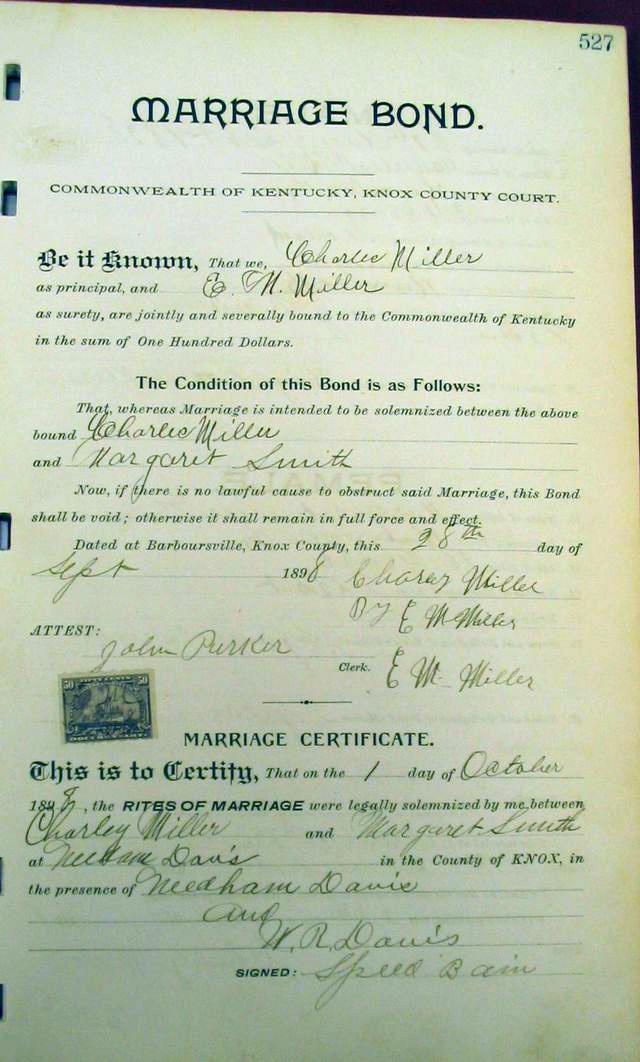 527
MARRIAGE BOND.
COMMONWEALTH OF KENTUCKY, KNOX COUNTY COURT.
Be it Known, That we, Charlie Miller
as principal, and E. M. Miller
as surety, are jointly and severally bound to the Commonwealth of Kentucky
in the sum of One Hundred Dollars.
The Condition of this Bond is as Follows:
That, whereas Marriage is intended to be solemnized between the above
bound Charlie Miller
and Margaret Smith
Now, if there is no lawful cause to obstruct said Marriage, this Bond
shall be void; otherwise it shall remain in full force and effect.
Dated at Barboursville, Knox County, this 28th day of
Sept 1898 Charley Miller
By E M Miller
ATTEST:
John Parker Clerk. E M Miller
50 FIFTY CENTS 50
DOCUMENTARY
MARRIAGE CERTIFICATE.
This is to Certify, That on the 1 day of October
1898, the RITES OF MARRIAGE were legally solemnized by me between
Charley Miller and Margaret Smith
at Davis in the County of KNOX, in
the presence of Needham Davis
and
W. R. Davis
SIGNED: Speed Bain